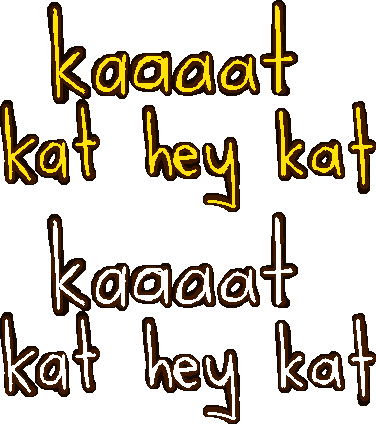 kaaaat
kat hey kat
kaaaat
kat hey kat